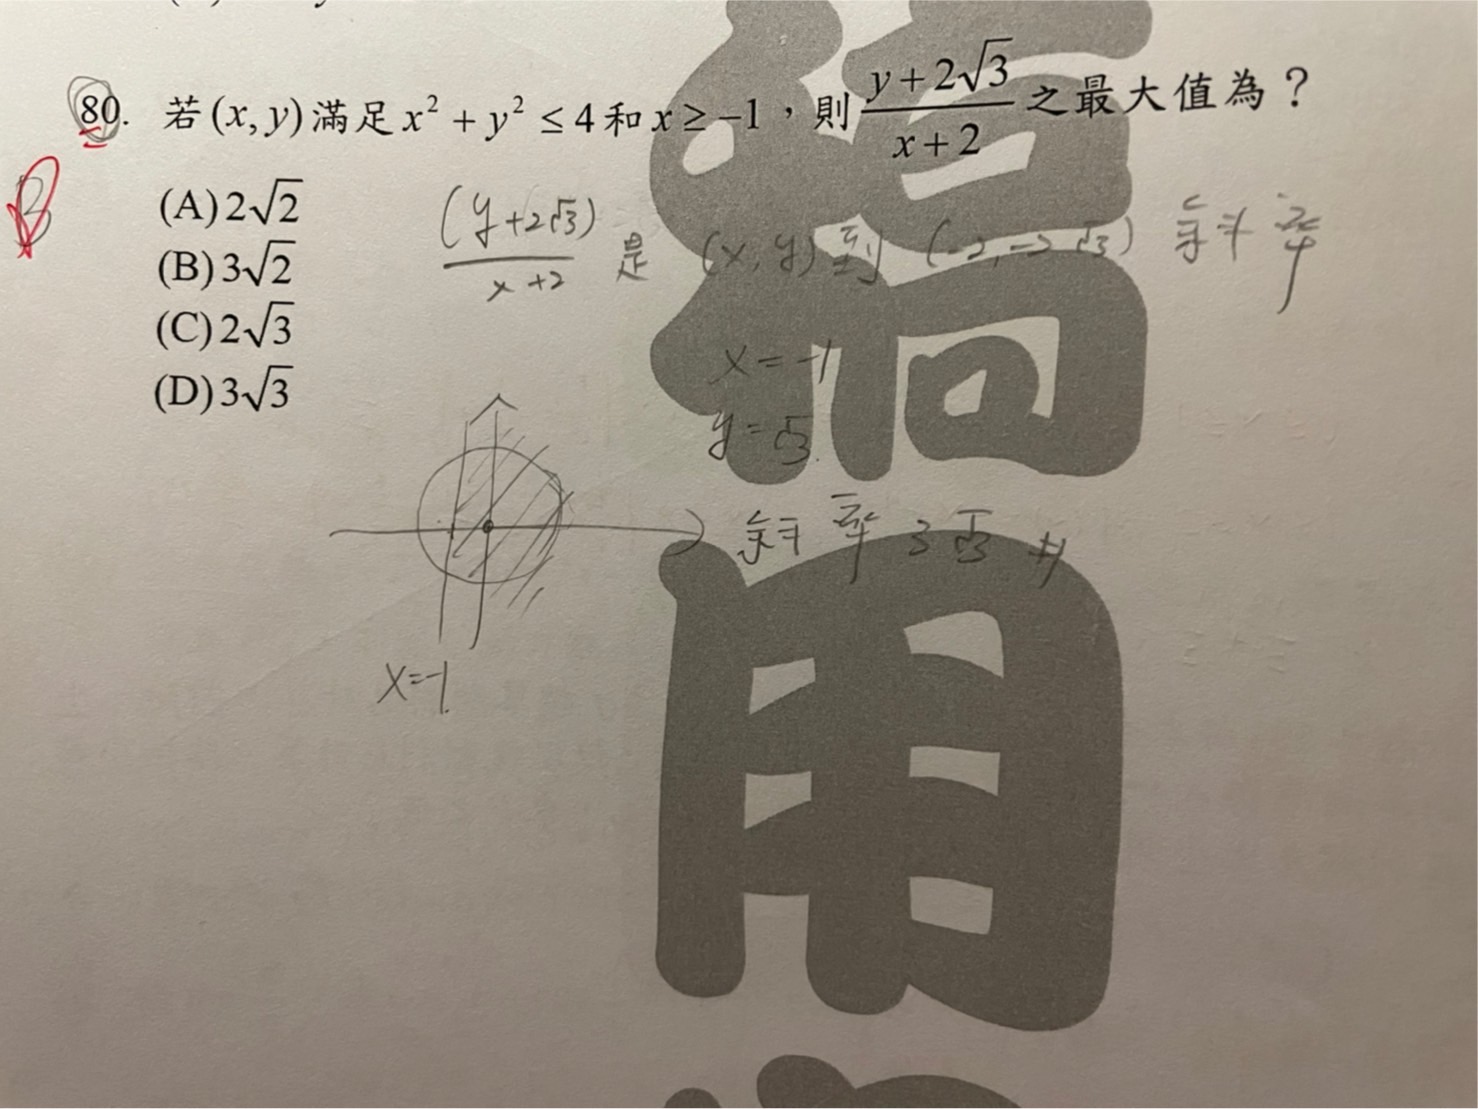 80. 若(x, y)滿足 x² + y² ≤ 4 和 x ≥ -1，則 \frac{y+2√3}{x+2} 之最大值為？
B
(A) 2√2
(B) 3√2
(C) 2√3
(D) 3√3
\frac{(y+2√3)}{x+2} 是 (x, y) 到 (-2, -2√3) 斜率
x = -1
y = √3
斜率 3√3 #
x=-1
用